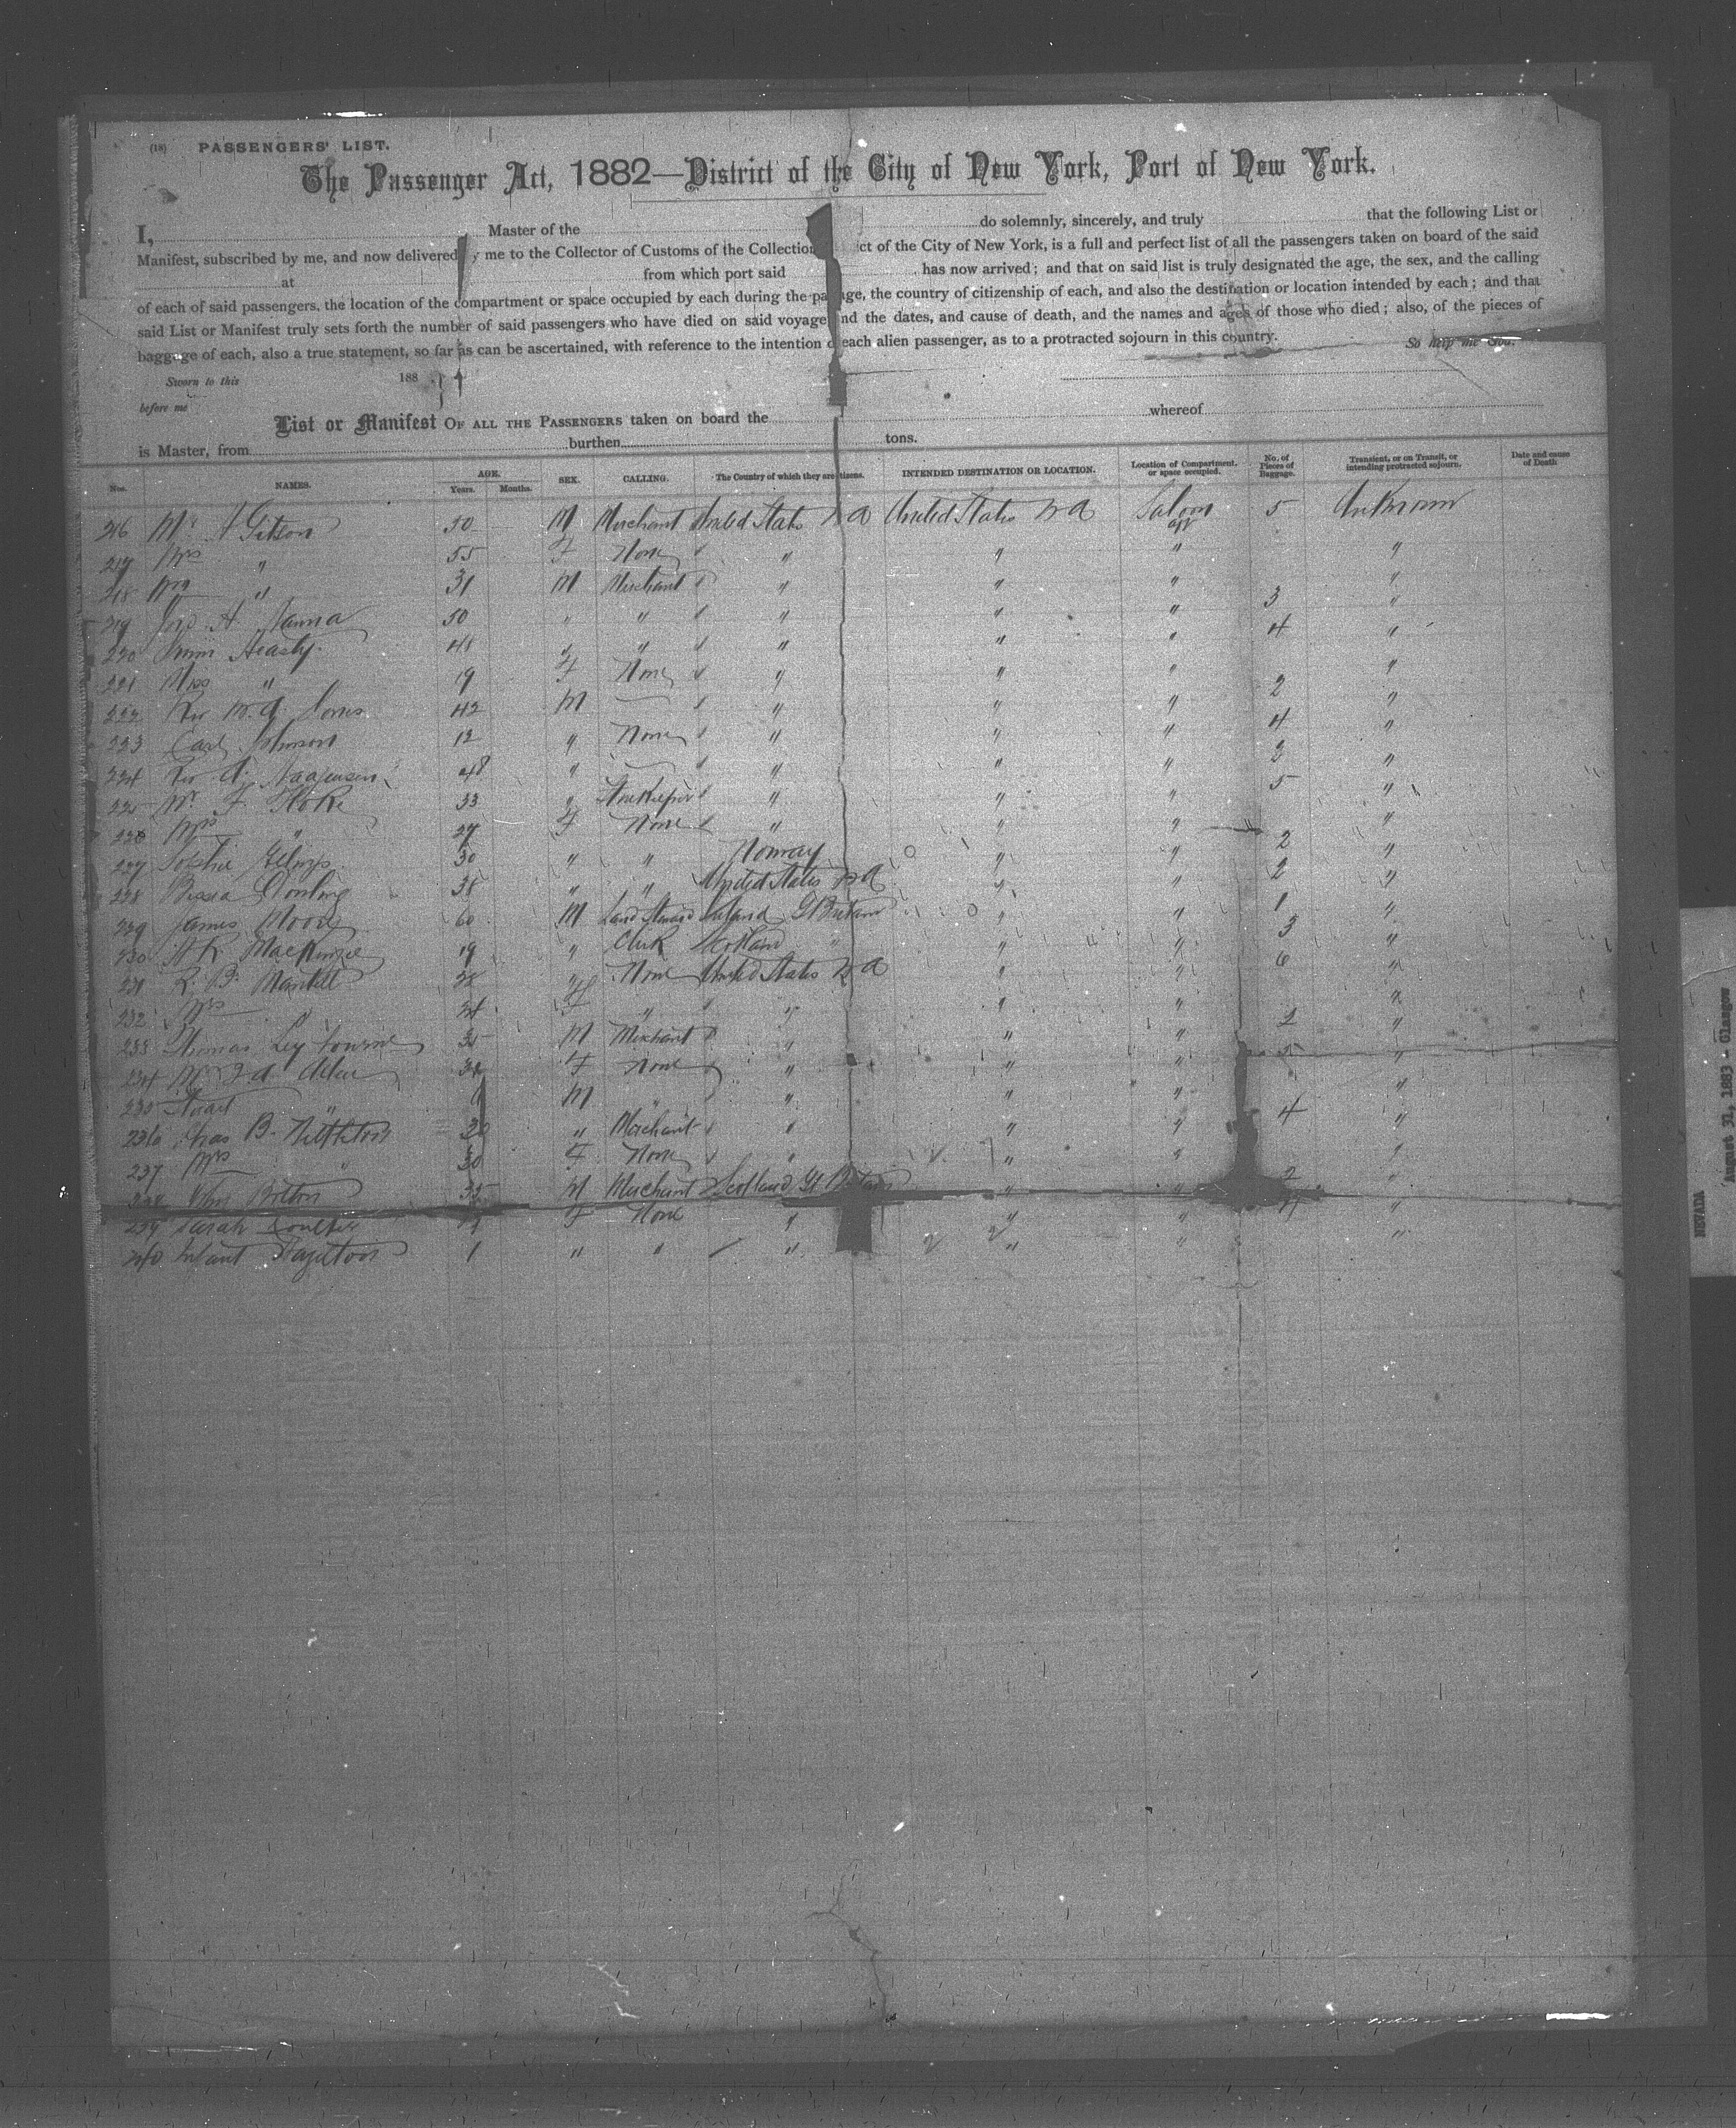 (18) PASSENGERS' LIST.
The Passenger Act, 1882—District of the City of New York, Port of New York.
I, Master of the do solemnly, sincerely, and truly that the following List or
Manifest, subscribed by me, and now delivered y me to the Collector of Customs of the Collection ict of the City of New York, is a full and perfect list of all the passengers taken on board of the said
at from which port said has now arrived; and that on said list is truly designated the age, the sex, and the calling
of each of said passengers, the location of the compartment or space occupied by each during the pa ge, the country of citizenship of each, and also the destination or location intended by each; and that
said List or Manifest truly sets forth the number of said passengers who have died on said voyage nd the dates, and cause of death, and the names and ages of those who died; also, of the pieces of
baggage of each, also a true statement, so far as can be ascertained, with reference to the intention of each alien passenger, as to a protracted sojourn in this country. So help me God.
Sworn to this 188
before me
List or Manifest OF ALL THE PASSENGERS taken on board the whereof
is Master, from burthen tons.
Nos. NAMES. AGE. Years. Months. SEX. CALLING. The Country of which they are citizens. INTENDED DESTINATION OR LOCATION. Location of Compartment, or space occupied. No. of Pieces of Baggage. Transient, or on Transit, or intending protracted sojourn. Date and cause of Death
216 Mr A Gibson 50 M Merchant United States N A United States N A Saloon aft 5 Unknown
217 Mrs " 55 F None " " " "
218 " 31 M Merchant " " " "
219 Jno A 50 " " " " " 3 "
220 48 " " " " " 4 "
221 Miss " 19 F None " " " "
222 Rev 42 M — " " " 2 "
223 Carl Johnson 12 " None " " " 4 "
224 Rev 48 " — " " " 2 "
225 Mr F 33 " Storekeeper " " " 5 "
226 Mrs " 27 F None " " " "
227 Sophie 30 " " Norway " " 2 "
228 38 " " United States N A " " 2 "
229 James Moore 60 M Land Steward Ireland Gt Britain " " 1 "
230 A R MacKenzie 19 " Clerk Scotland " " " 3 "
231 R. B. Mantell 28 " None United States N A " " 6 "
232 Mrs " 24 F " " " " "
233 Thomas 35 M Merchant " " " 2 "
234 F None " " " 5 "
235 Stuart " M " " " " "
236 Chas B. Nettleton 30 " Merchant " " " 4 "
237 Mrs " 30 F None " " " "
238 Bolton 35 M Merchant Scotland Gt Britain " " 2 "
239 Sarah Coulter F None " " " "
240 Infant 1 " " " " " "
NEVADA August 31, 1883 - Glasgow